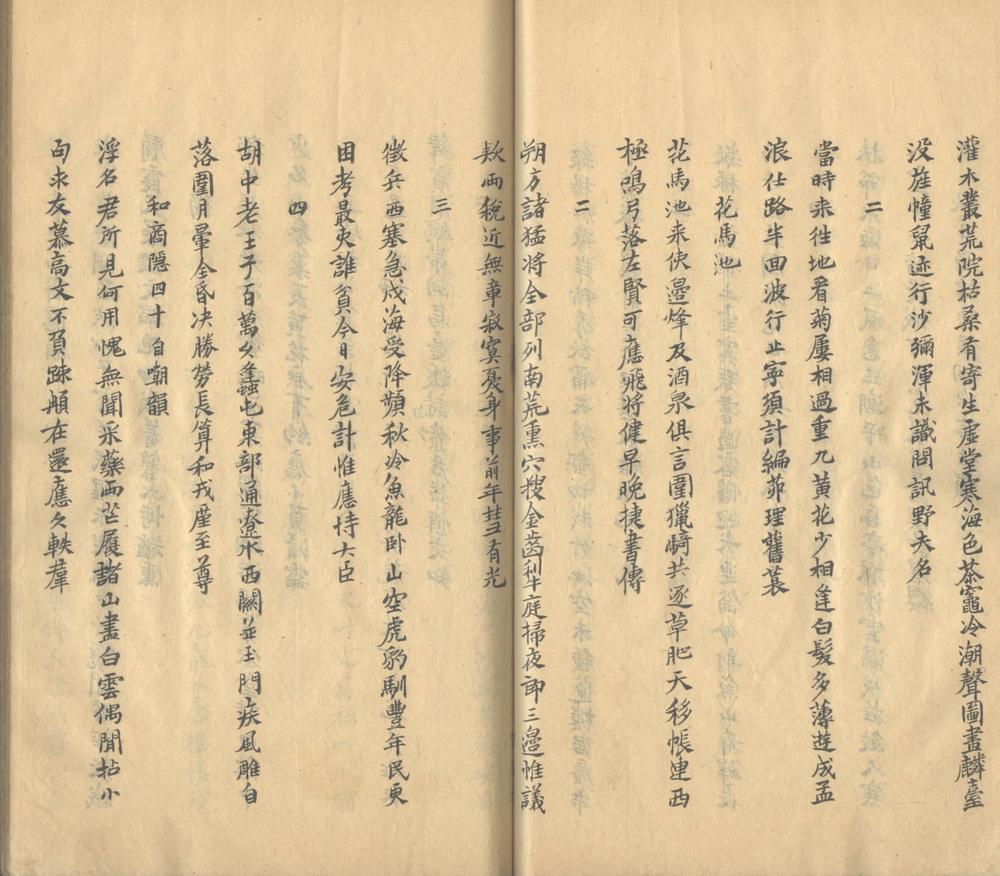 灌木叢荒院枯桑有寄生虛堂寒海色茶竈冷潮聲圖畫麟臺
沒旌幢鼠迹行沙彌渾未識問訊野夫名
二
當時来徃地看菊屢相過重九黄花少相逢白髮多薄遊成孟
浪仕路半回波行止寧須計編茆理舊蓑
花馬池
花馬池来使邉烽及酒泉俱言圍獵騎共逐草肥天移帳連西
極鳴弓落左賢可應飛將健早晚捷書傳
二
朔方諸猛將全部列南荒熏穴搜金齒犁庭掃夜郎三邉惟議
欵両稅近無章寂寞憂身事前年彗有光
三
徵兵西塞急戍海受降頻秋冷魚龍卧山空虎豹馴豐年民更
困考最吏誰貧今日安危計惟應恃大臣
四
胡中老王子百萬久屯東部通遼水西關並玉門疾風雕自
落圍月暈全昏决勝勞長算和戎麈至尊
和商隱四十自嘲韻
浮名君所見何用愧無聞采藥両芒屨諸山盡白雲偶聞拈小
句求友慕高文不頁踈頑在還應久軼羣